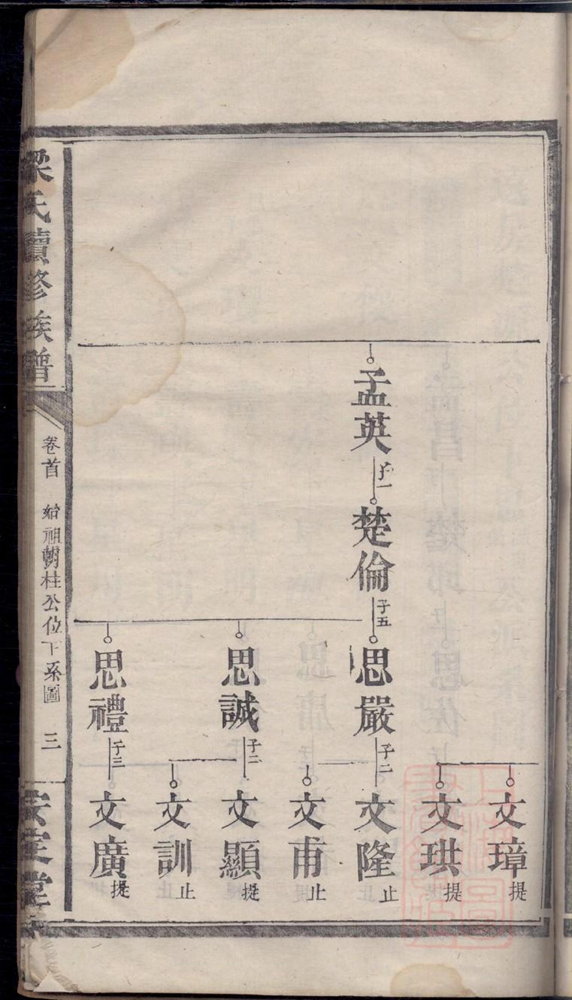 孟英 子一
楚倫 子五
思嚴 子二
思誠 子二
思禮 子三
文璋 提
文珙 提
文隆 止
文甫 止
文顯 提
文訓 止
文廣 提
梁氏續修族譜
卷首 始祖朝柱公位下系圖 三
安定堂